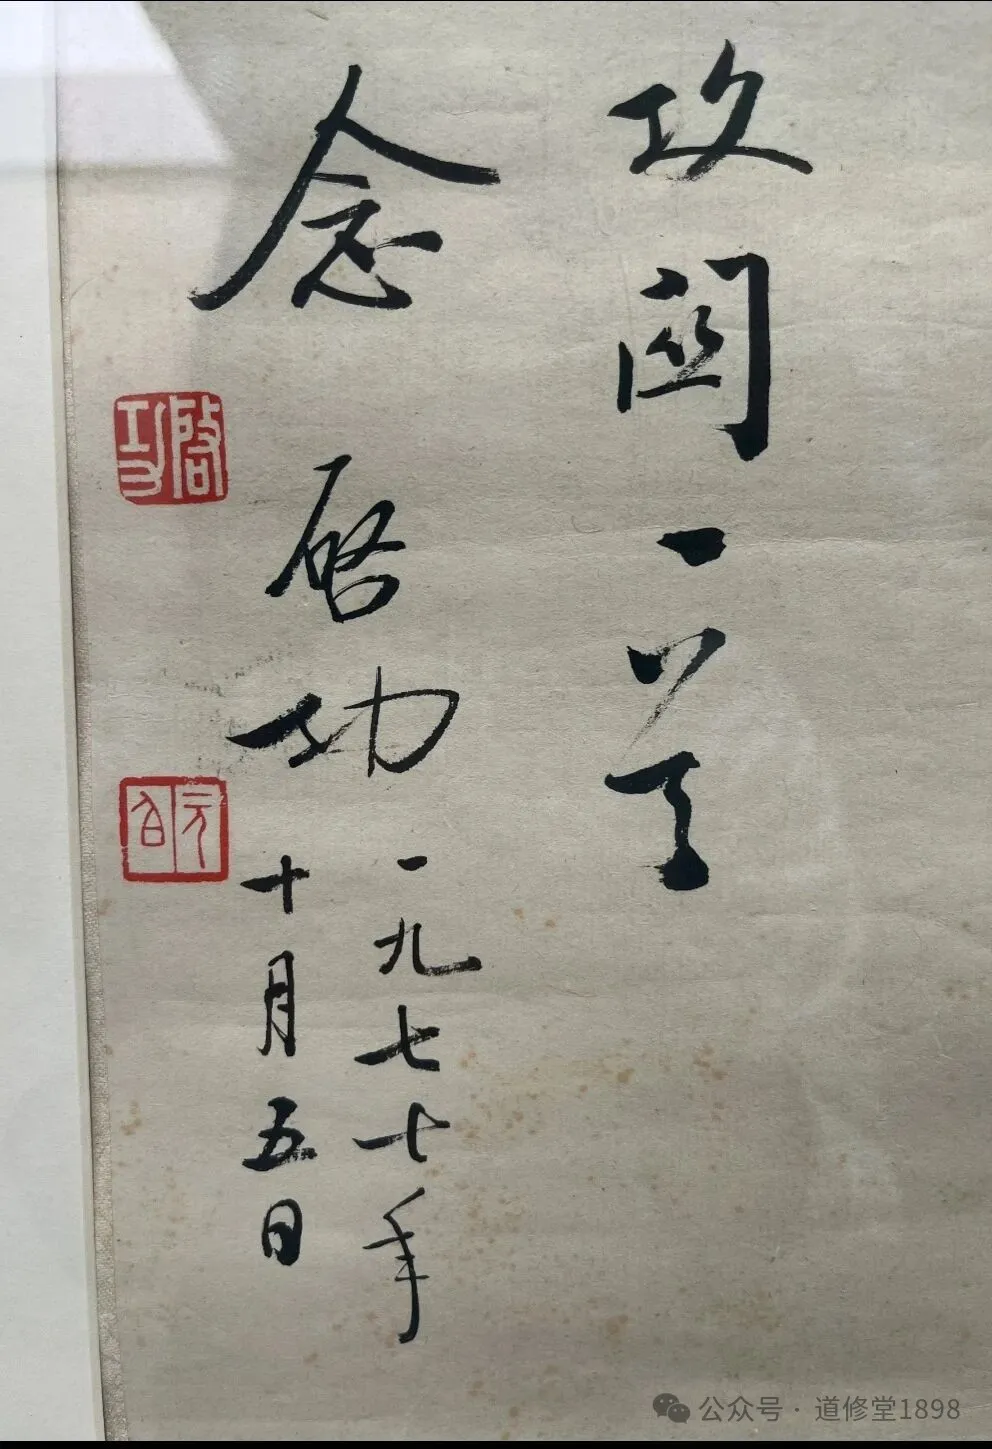 攻關一首
念
啓功
一九七七年
十月五日
啓功
元白
公众号·道修堂1898